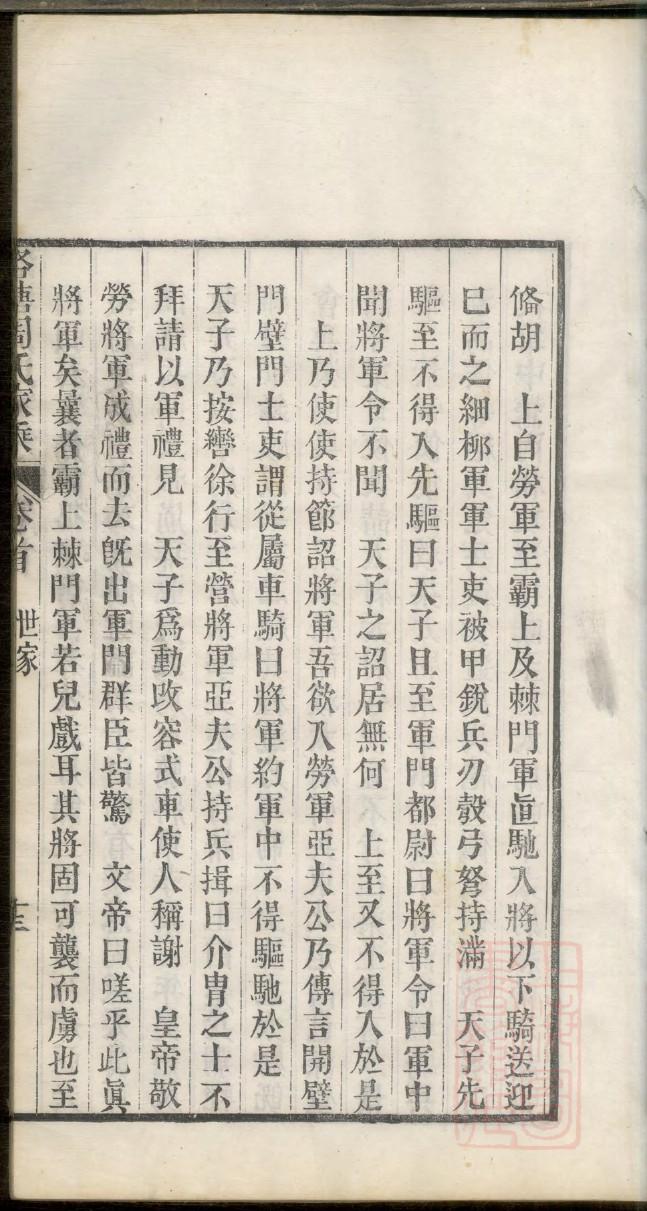 俻胡　上自勞軍至霸上及棘門軍直馳入將以下騎送迎
已而之細柳軍軍士吏被甲銳兵刃彀弓弩持滿　天子先
驅至不得入先驅曰天子且至軍門都尉曰將軍令曰軍中
聞將軍令不聞　天子之詔居無何　上至又不得入於是
　上乃使使持節詔將軍吾欲入勞軍亞夫公乃傳言開壁
門壁門士吏謂從屬車騎曰將軍約軍中不得驅馳於是
天子乃按轡徐行至營將軍亞夫公持兵揖曰介冑之士不
拜請以軍禮見　天子爲動攺容式車使人稱謝　皇帝敬
勞將軍成禮而去旣出軍門群臣皆驚　文帝曰嗟乎此眞
將軍矣曩者霸上棘門軍若兒戲耳其將固可襲而虜也至
周氏家乘　卷首　世家　十三